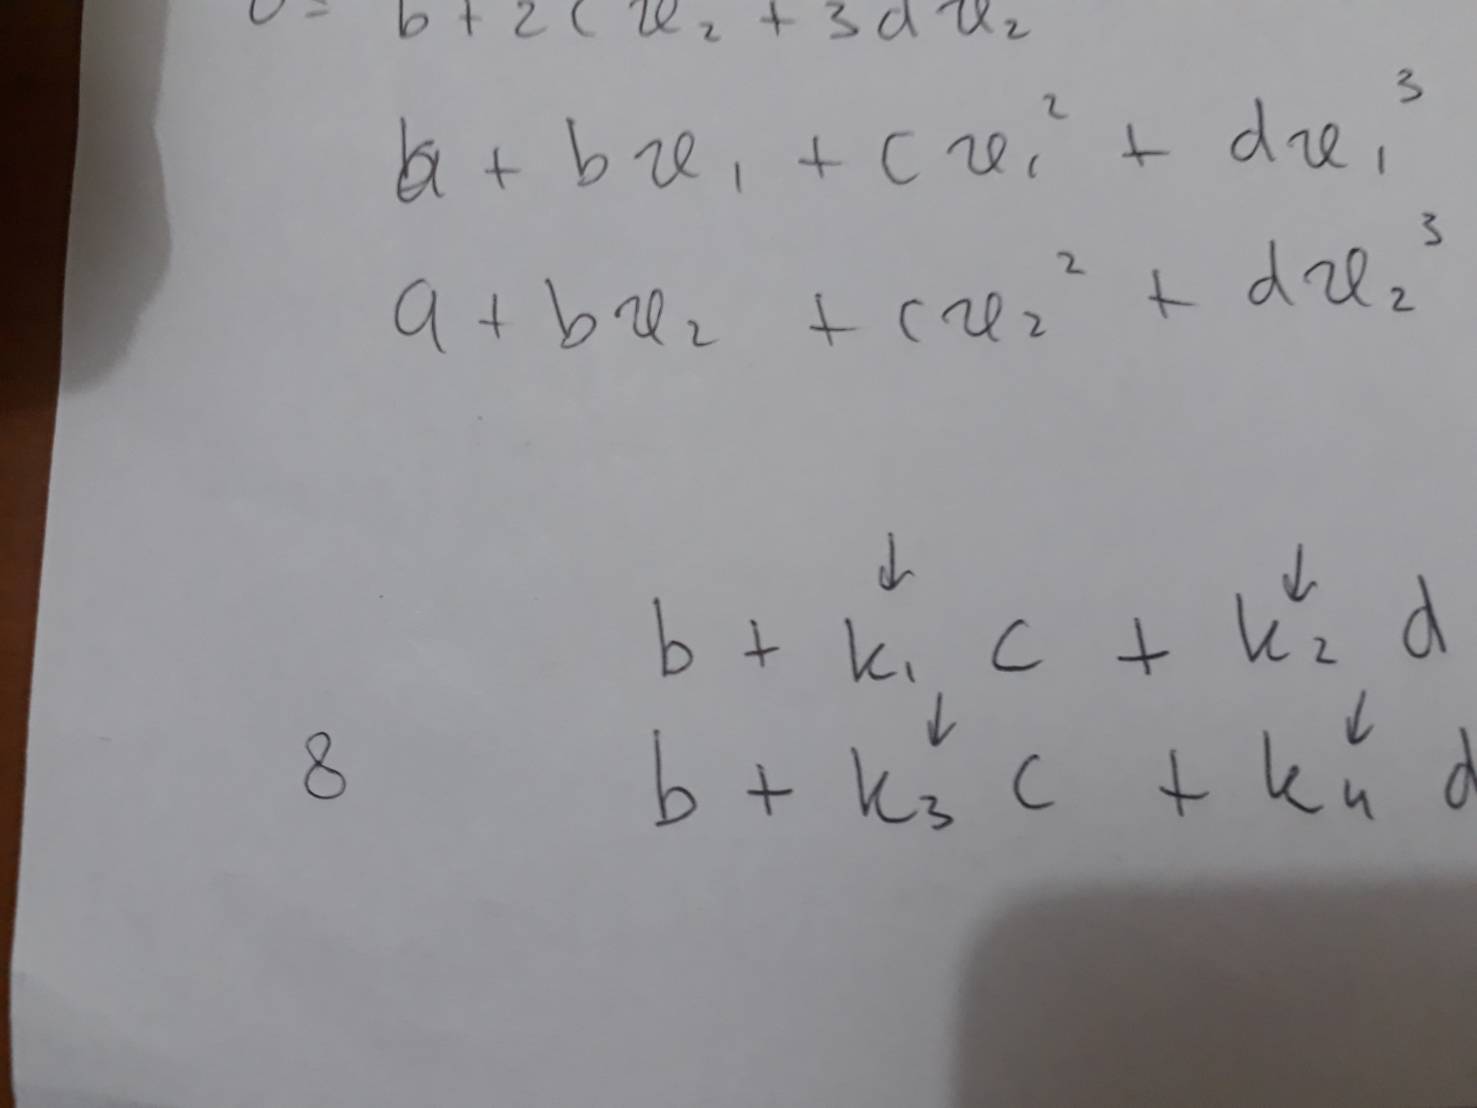 0 = b + 2cx₂ + 3dx₂
a + bx₁ + cx₁² + dx₁³
a + bx₂ + cx₂² + dx₂³
↓ ↓
b + k₁ c + k₂ d
↓ ↓
8 b + k₃ c + k₄ d